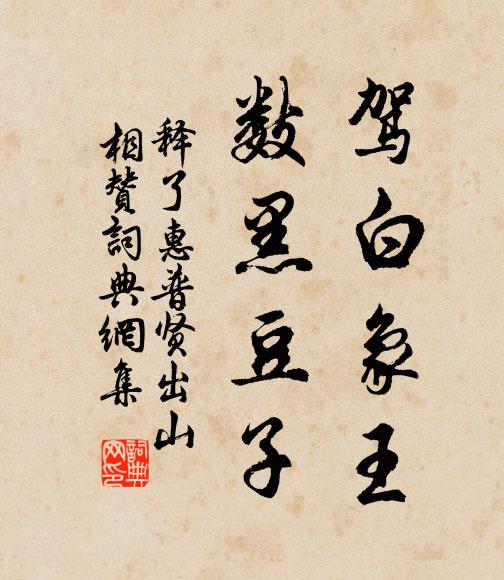 驾白象王
数黑豆子
释了惠普贤出山
相赞詞典網集
詞典網印